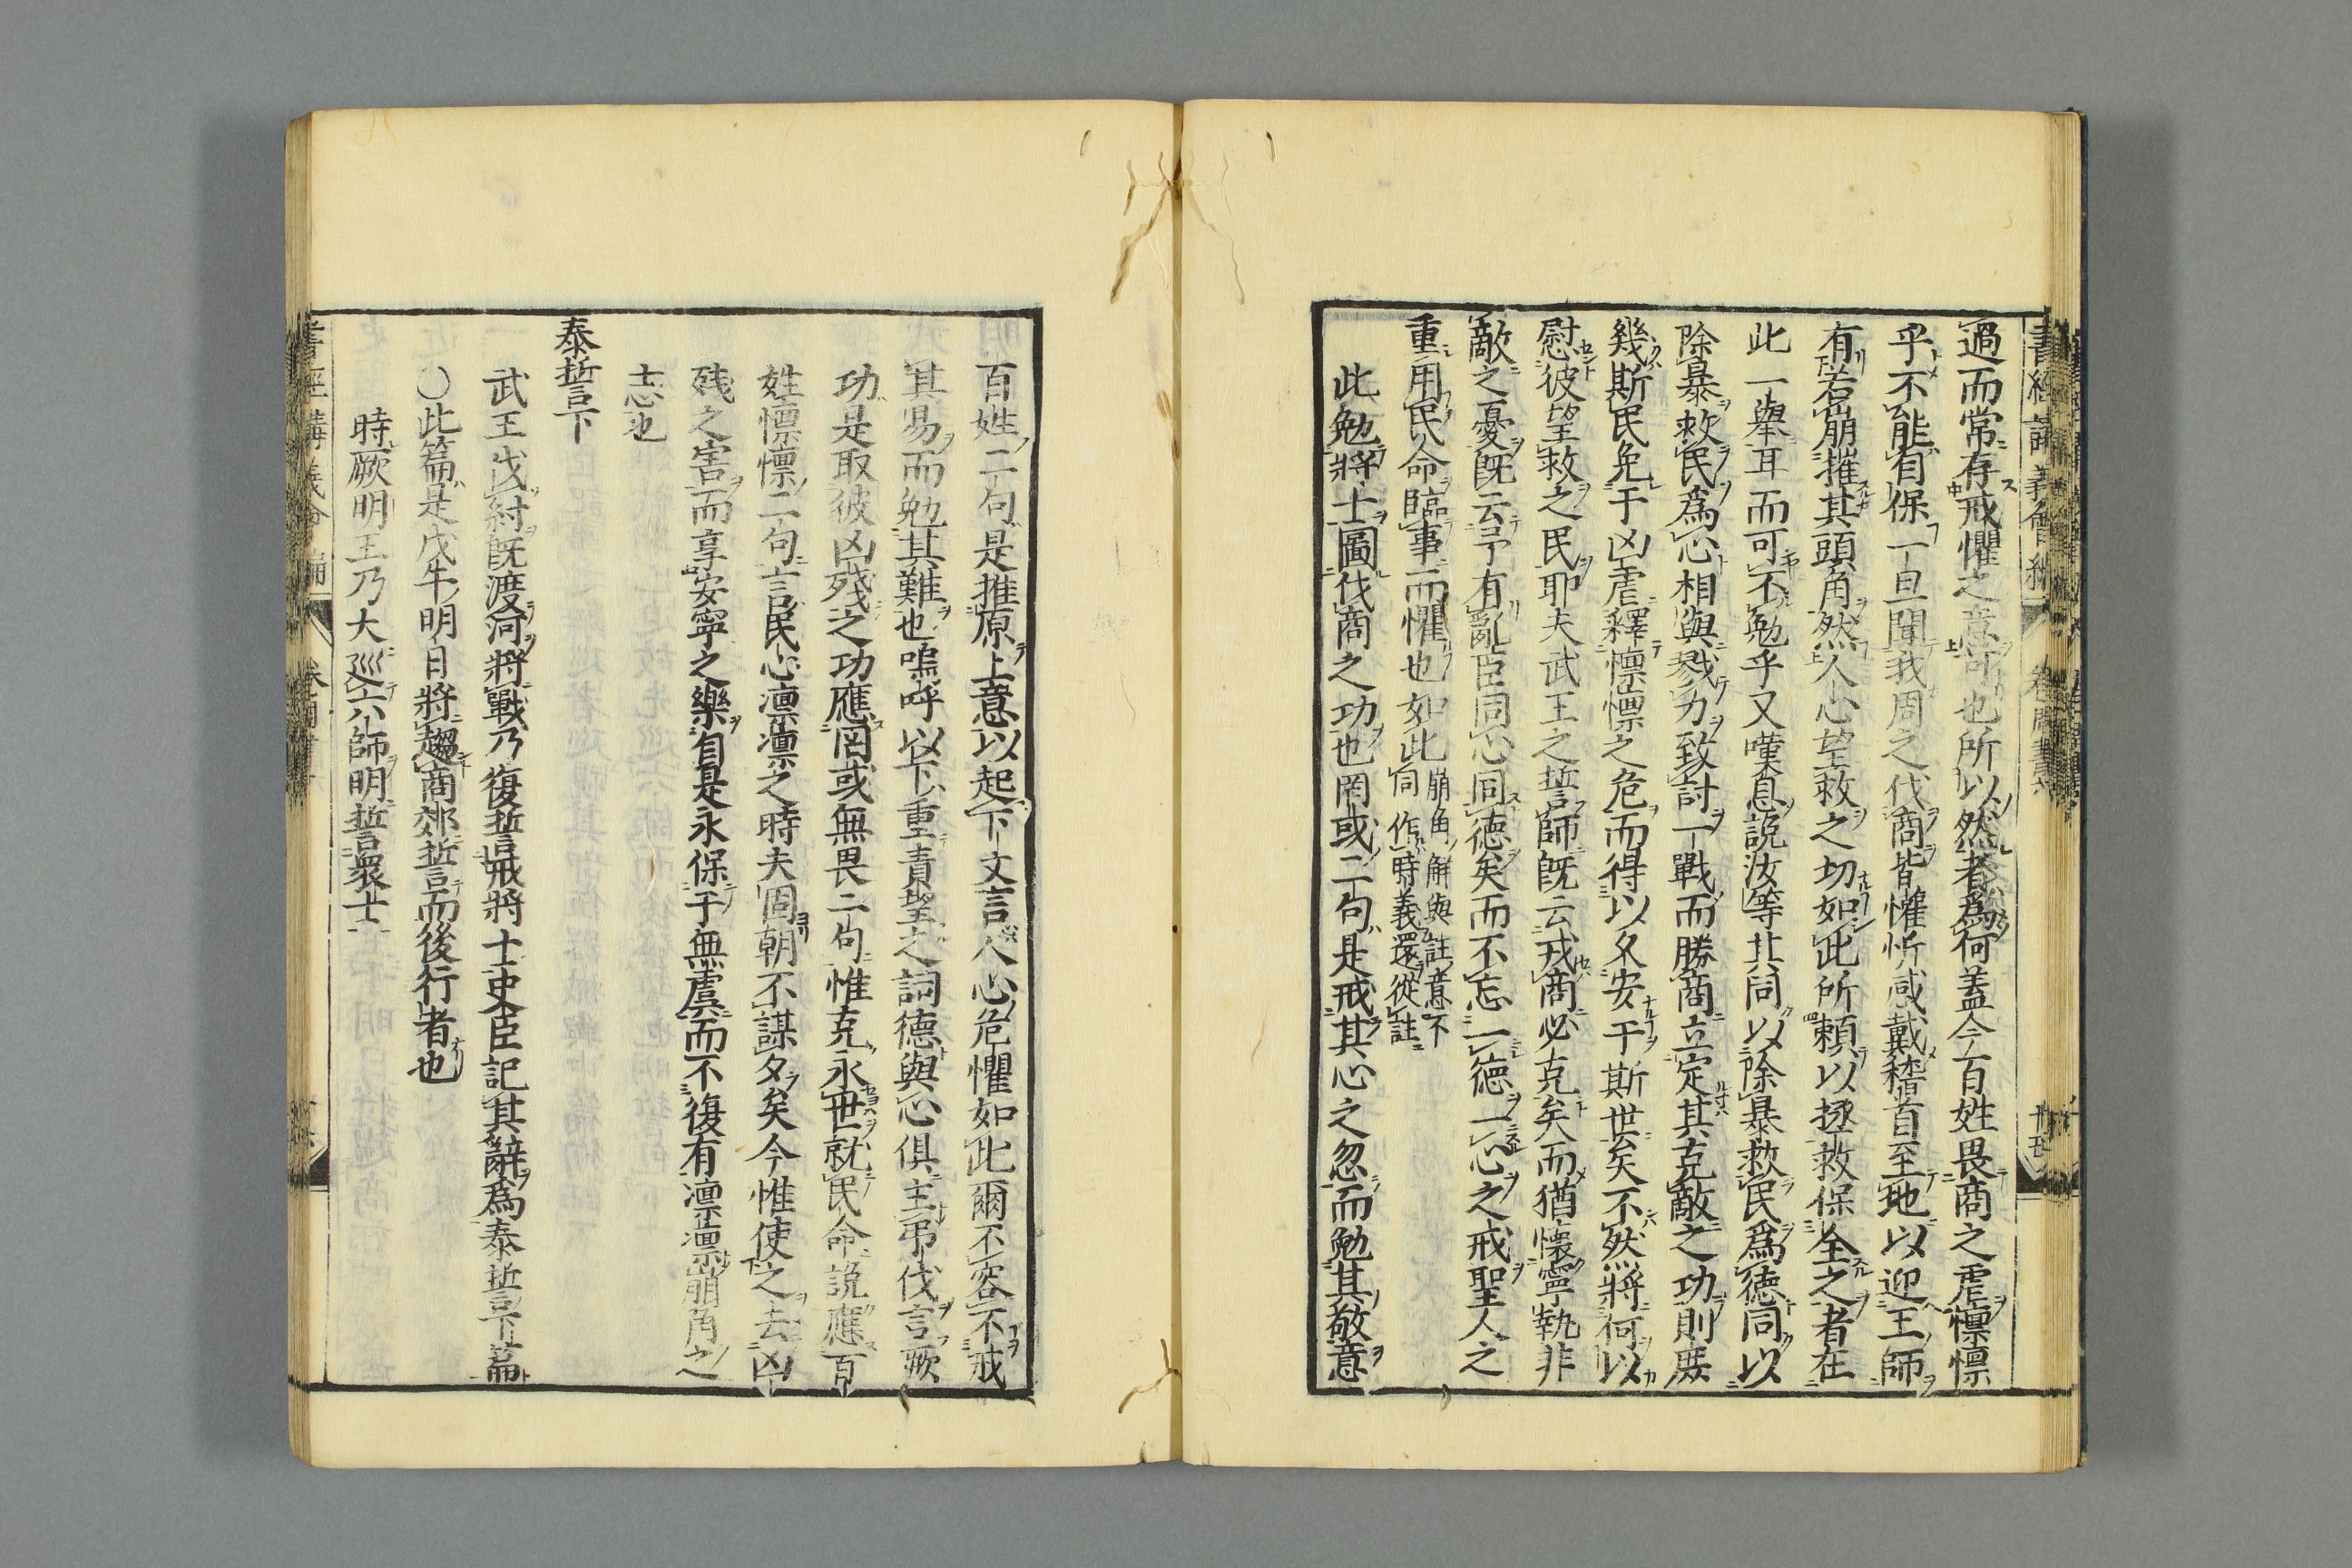 過而常存戒懼之意可也所以然者為何蓋今百姓畏商之虐懍懍
乎不能自保一旦聞我周之伐商皆懽忻感戴稽首至地以迎王師
有若崩摧其頭角然人心望救之切如此所頼以拯救保全之者在
此一舉耳而可不勉乎又嘆息說汝等其同以除暴救民為德同以
除暴救民為心相與戮力致討一戰而勝商立定其克敵之功則庻
幾斯民免于凶虐釋懍懍之危而得以久安于斯世矣不然將何以
慰彼望救之民耶夫武王之誓師既云戎商必克矣而猶懷寧執非
敵之憂既云予有亂臣同心同德矣而不忘一德一心之戒聖人之
重用民命臨事而懼也如此 崩角解與註意不同 作時義還從註
此勉將士圖伐商之功也罔或二句是戒其心之忽而勉其敬意
百姓二句是推原上意以起下文言人心危懼如此爾不容不戒
其易而勉其難也嗚呼以下重責望之詞德與心俱主弔伐言厥
功是取彼凶殘之功應罔或無畏二句惟克永世就民命說應百
姓懍懍二句言民心凛凛之時夫固朝不謀夕矣今惟使之去凶
殘之害而享安寧之樂自是永保于無虞而不復有凛凛崩角之
志也
泰誓下
武王伐紂既渡河將戰乃復誓戒將士史臣記其辭為泰誓下篇
○此篇是戊午明日將趨商郊誓而後行者也
時厥明王乃大巡六師明誓衆士